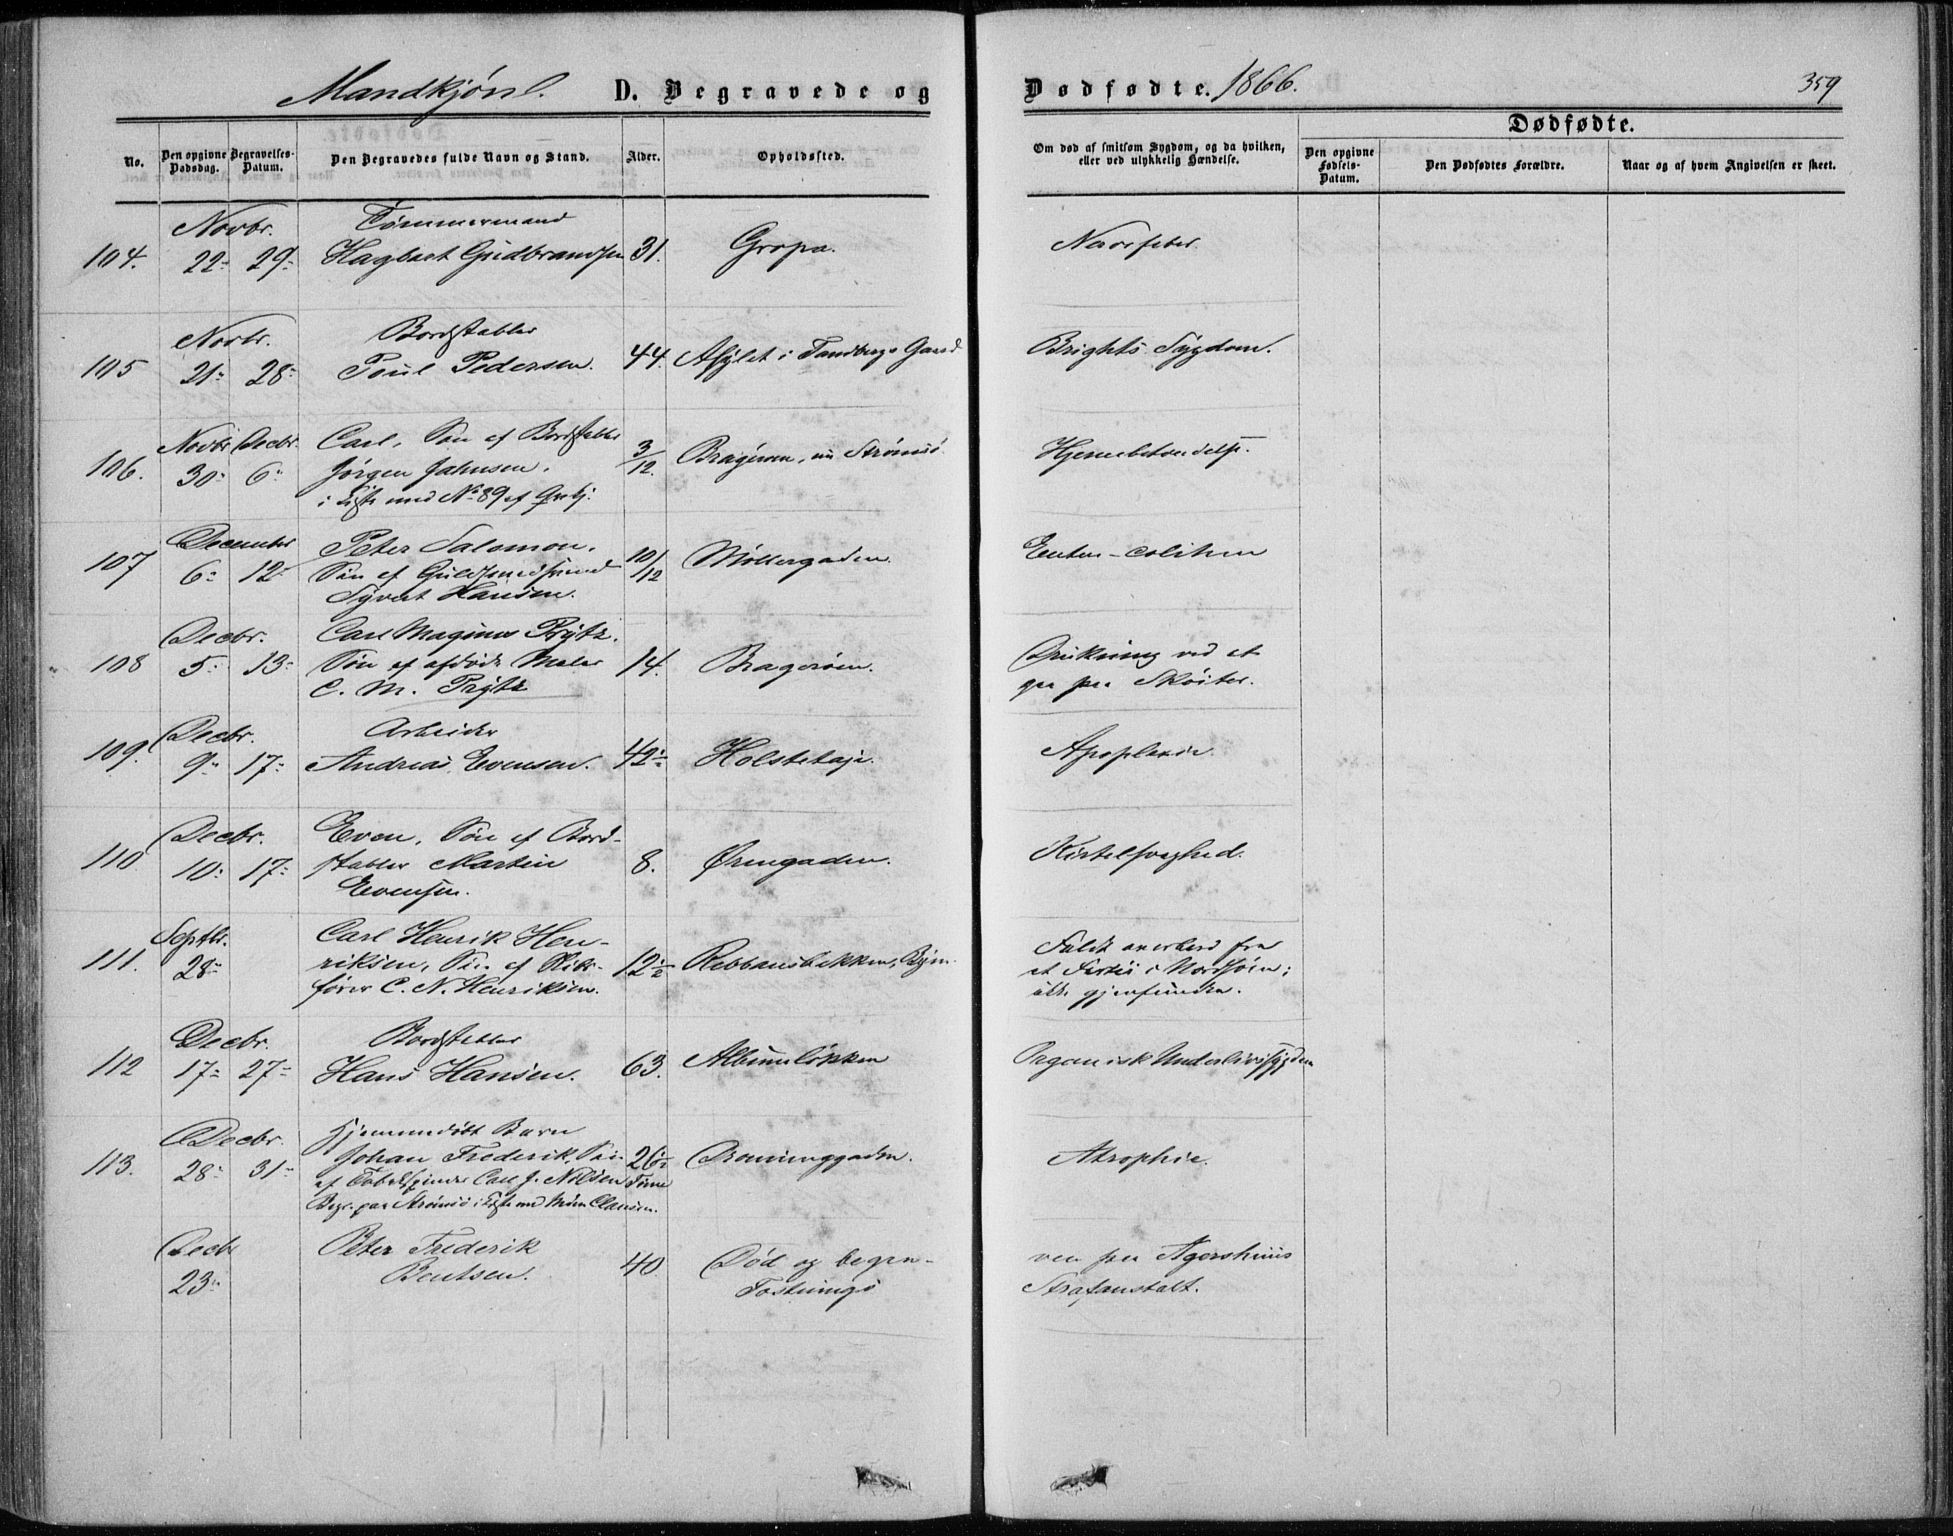 Mandkjøn. D. Begravede og Dødfødte. 1866. 359
Dødfødte.
No. Den opgivne Dødsdag. Begravelses-Datum. Den Begravedes fulde Navn og Stand. Alder. Opholdssted. Om død af smitsom Sygdom, og da hvilken, eller ved ulykkelig Hændelse. Den opgivne Fødsels-Datum. Den Dødfødtes Forældre. Naar og af hvem Angivelsen er skeet.
Novbr. Tømmermand
104. 22 29 Hagbart Gudbrandsen 31. Gropa. Nervefeber.
Novbr. Bordstabler
105 21 28 Poul Pedersen. 44. Asylet i Tandbergs Gaard Brights Sygdom.
Novbr Decbr. Carl, Søn af Bordstabler
106. 30 6 Jørgen Jahnsen. 3/12. Bragernes, nu Strømsø Hjernebetændelse.
i Kiste med No 89 af Qvkj.
December Peter Salomon,
107 6 12 Søn af Guldsmedsvend 10/12 Møllergaden.
Syvert Hansen.
Decbr. Carl Magnus Prytz.
108 5 13 Søn af afdøde Maler 14. Bragerøen. Drukning ved at
C. M. Prytz gaa paa Skøiter.
Decbr. Arbeider
109. 9 17 Andreas Evensen. 42½ Apoplexie.
Decbr. Even, Søn af Bord-
110 10 17 stabler Martin 8. Ørengaden. Kirtelsvaghed.
Evensen.
Septbr. Carl Henrik Hen-
111. 28 riksen, Søn af Skibs- 12½ Faldt overbord fra
fører C. N. Henriksen. et Fartøi i Nordsøen;
ikke gjenfunden.
Decbr. Bordstabler
112 17 27 Hans Hansen. 63. Albumløkken Organisk Underlivssygdom
Decbr. Hjemmedøbt Barn
113. 28 31 Johan Frederik, Søn 26½ Dronninggaden. Atrophie.
af Tobakspinder Carl J. Nilsen Time
Begr. paa Strømsø i Kiste med Clausen.
Decbr Peter Frederik
23 Bentsen. 40 Død og begra- ven paa Agershuus
Fæstnings Strafanstalt.